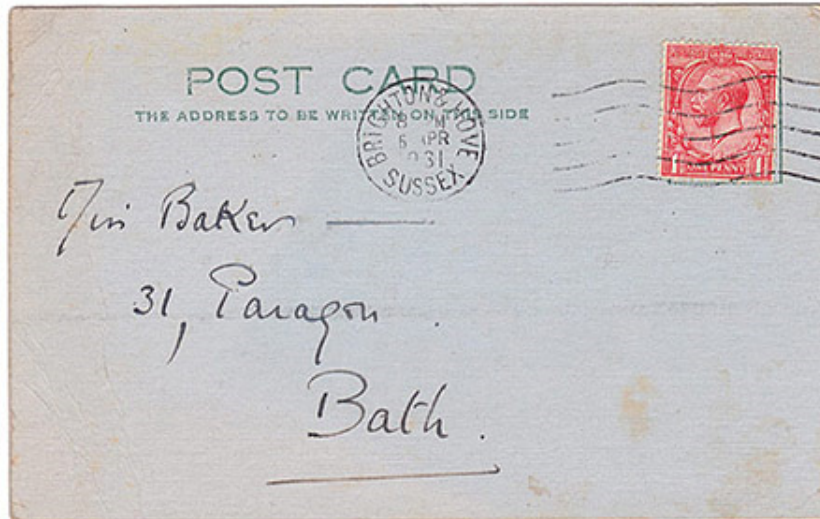 POST CARD
THE ADDRESS TO BE WRITTEN ON THIS SIDE
BRIGHTON & HOVE
6 APR
31
SUSSEX
Miss Baker
31, Paragon
Bath.